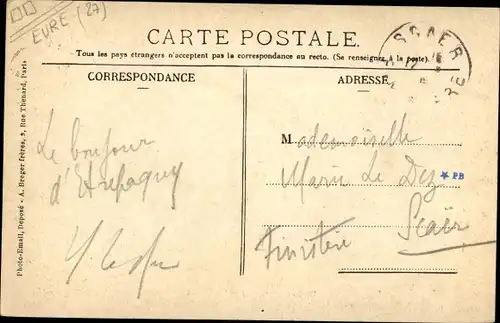 EURE (27)
SCAER
CARTE POSTALE.
Tous les pays étrangers n'acceptent pas la correspondance au recto. (Se renseigner à la poste).
CORRESPONDANCE
ADRESSE
Photo-Email, Déposé - A. Breger frères, 9, Rue Thenard, Paris
Le bonjour
d'Etrepagny
Mademoiselle
Marie Le Dez
* PB
Scaër
Finistère